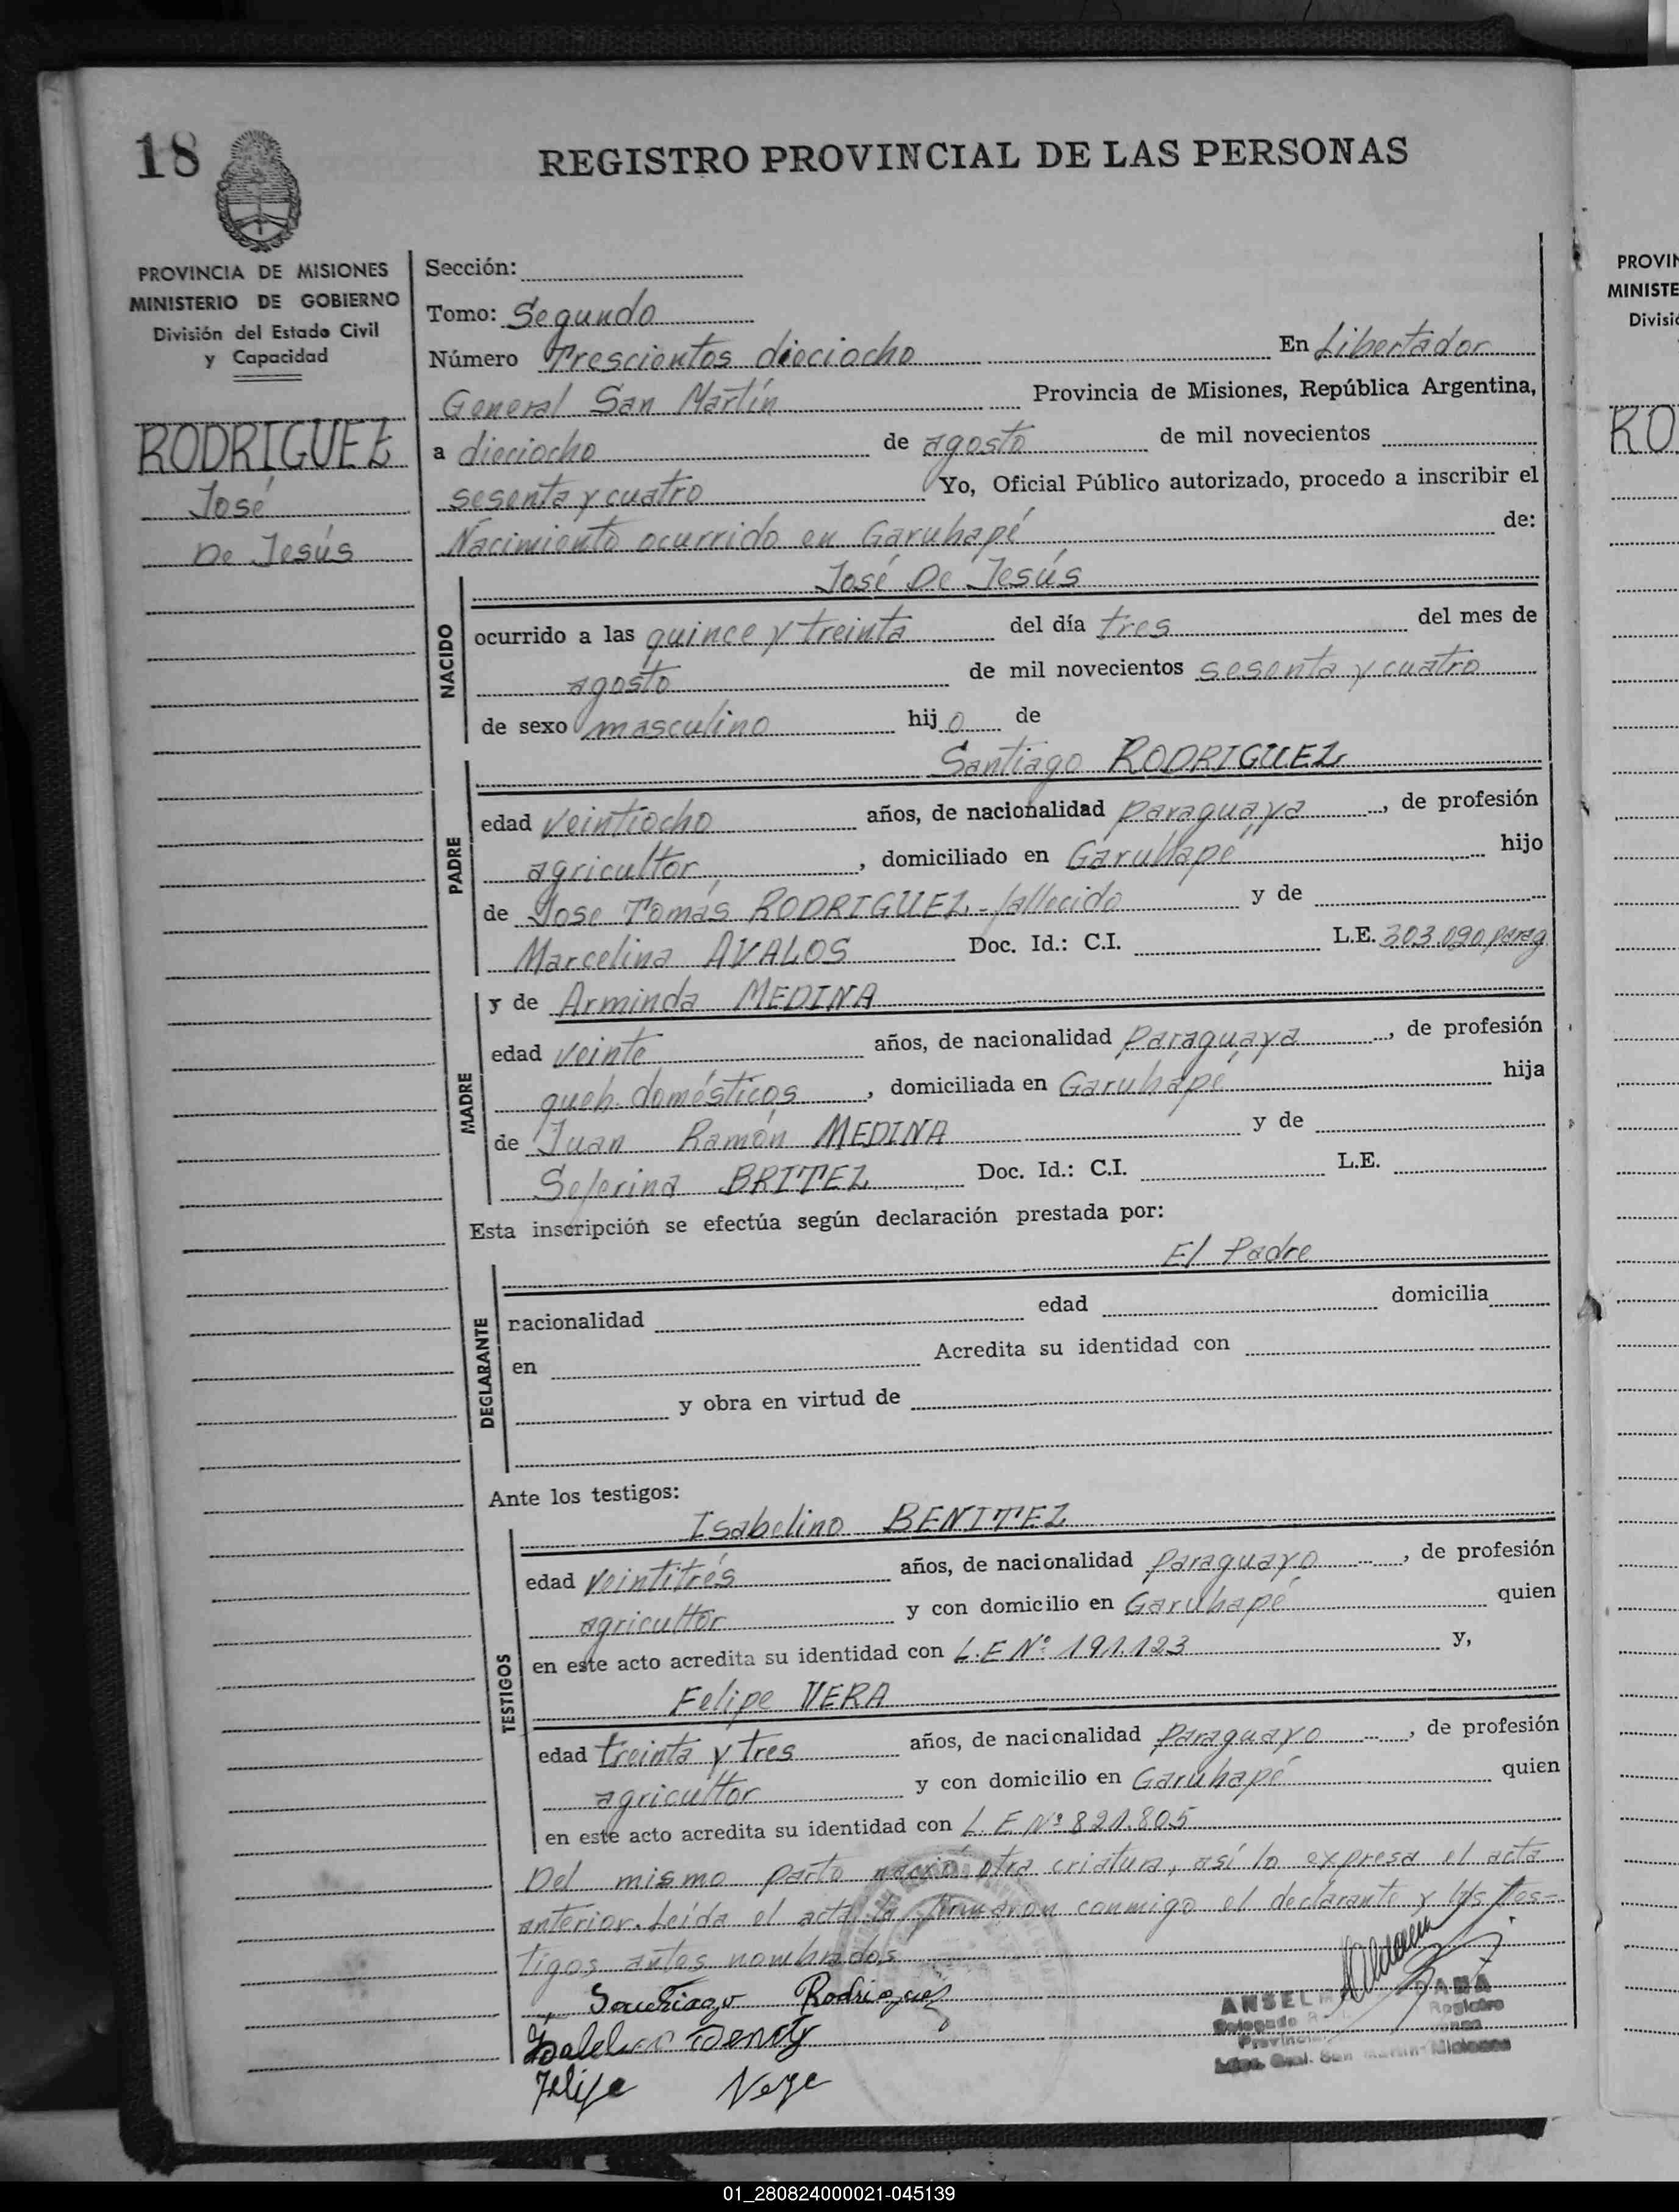 18
REGISTRO PROVINCIAL DE LAS PERSONAS
PROVINCIA DE MISIONES
MINISTERIO DE GOBIERNO
División del Estado Civil
y Capacidad
RODRIGUEZ
José
De Jesús
Sección:
Tomo: Segundo
Número Trescientos dieciocho En Libertador
General San Martín Provincia de Misiones, República Argentina,
a dieciocho de agosto de mil novecientos
sesenta y cuatro Yo, Oficial Público autorizado, procedo a inscribir el
Nacimiento ocurrido en Garuhapé de:
José De Jesús
NACIDO
ocurrido a las quince y treinta del día tres del mes de
agosto de mil novecientos sesenta y cuatro
de sexo masculino hijo de
Santiago RODRIGUEZ
PADRE
edad veintiocho años, de nacionalidad paraguaya, de profesión
agricultor, domiciliado en Garuhapé hijo
de Jose Tomás RODRIGUEZ - fallecido y de
Marcelina AVALOS Doc. Id.: C.I. L.E. 303.090 parag
MADRE
y de Arminda MEDINA
edad veinte años, de nacionalidad Paraguaya, de profesión
queh. domésticos, domiciliada en Garuhapé hija
de Juan Ramón MEDINA y de
Seferina BRITEZ Doc. Id.: C.I. L.E.
Esta inscripción se efectúa según declaración prestada por:
El Padre
DECLARANTE
nacionalidad edad domicilia
en Acredita su identidad con
y obra en virtud de
Ante los testigos:
Isabelino BENITEZ
TESTIGOS
edad veintitrés años, de nacionalidad Paraguayo, de profesión
agricultor y con domicilio en Garuhapé quien
en este acto acredita su identidad con L.E Nº 191.123 y,
Felipe VERA
edad treinta y tres años, de nacionalidad Paraguayo, de profesión
agricultor y con domicilio en Garuhapé quien
en este acto acredita su identidad con L.E Nº 821.805
Del mismo parto nació otra criatura, así lo expresa el acta
anterior. Leída el acta la firmaron conmigo el declarante y los tes-
tigos antes nombrados
Santiago Rodriguez
Felipe
PROVIN
MINISTE
Divisió
RO
01_280824000021-045139